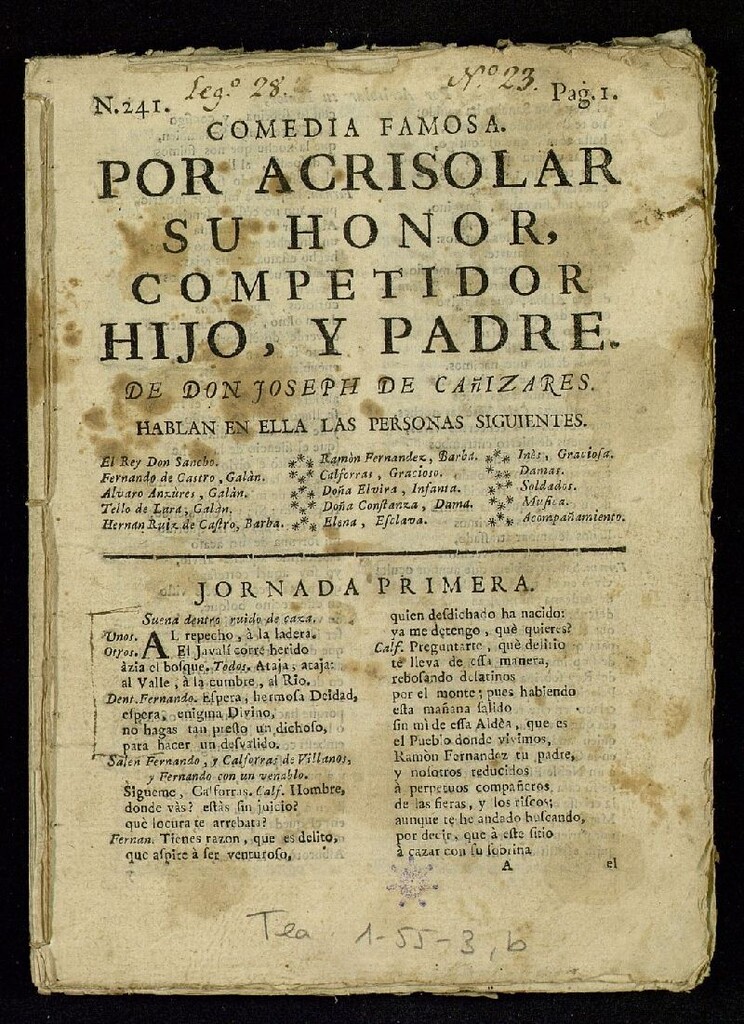 Leg.º 28. N.º 23.
N.241. Pag.1.
COMEDIA FAMOSA.
POR ACRISOLAR
SU HONOR,
COMPETIDOR
HIJO, Y PADRE.
DE DON JOSEPH DE CAÑIZARES.
HABLAN EN ELLA LAS PERSONAS SIGUIENTES.
El Rey Don Sancho.
Fernando de Castro, Galàn.
Alvaro Anzures, Galàn.
Tello de Lara, Galàn.
Hernan Ruiz de Castro, Barba.
Ramòn Fernandez, Barba.
Calforras, Gracioso.
Doña Elvira, Infanta.
Doña Constanza, Dama.
Elena, Esclava.
Inès, Graciosa.
Damas.
Soldados.
Musica.
Acompañamiento.
JORNADA PRIMERA.
Suena dentro ruido de caza.
Unos. AL repecho, à la ladera.
Otros. El Javalì corre herido
àzia el bosque. Todos. Ataja, ataja:
al Valle, à la cumbre, al Rio.
Dent. Fernando. Espera, hermosa Deidad,
espera, enigma Divino,
no hagas tan presto un dichoso,
para hacer un desvalido.
Salen Fernando, y Calforras de Villanos,
y Fernando con un venablo.
Sigueme, Calforras. Calf. Hombre,
donde vàs? estàs sin juicio?
què locura te arrebata?
Fernan. Tienes razon, que es delito,
que aspire à ser venturoso,
quien desdichado ha nacido:
ya me detengo, què quieres?
Calf. Preguntarte, què delito
te lleva de essa manera,
rebosando desatinos
por el monte; pues habiendo
esta mañana salido
sin mì de essa Aldèa, que es
el Pueblo donde vivimos,
Ramòn Fernandez tu padre,
y nosotros reducidos
à perpetuos compañeros
de las fieras, y los riscos;
aunque te he andado buscando,
por decir, que à este sitio
à cazar con su sobrina
A el
Tea 1-55-3, b